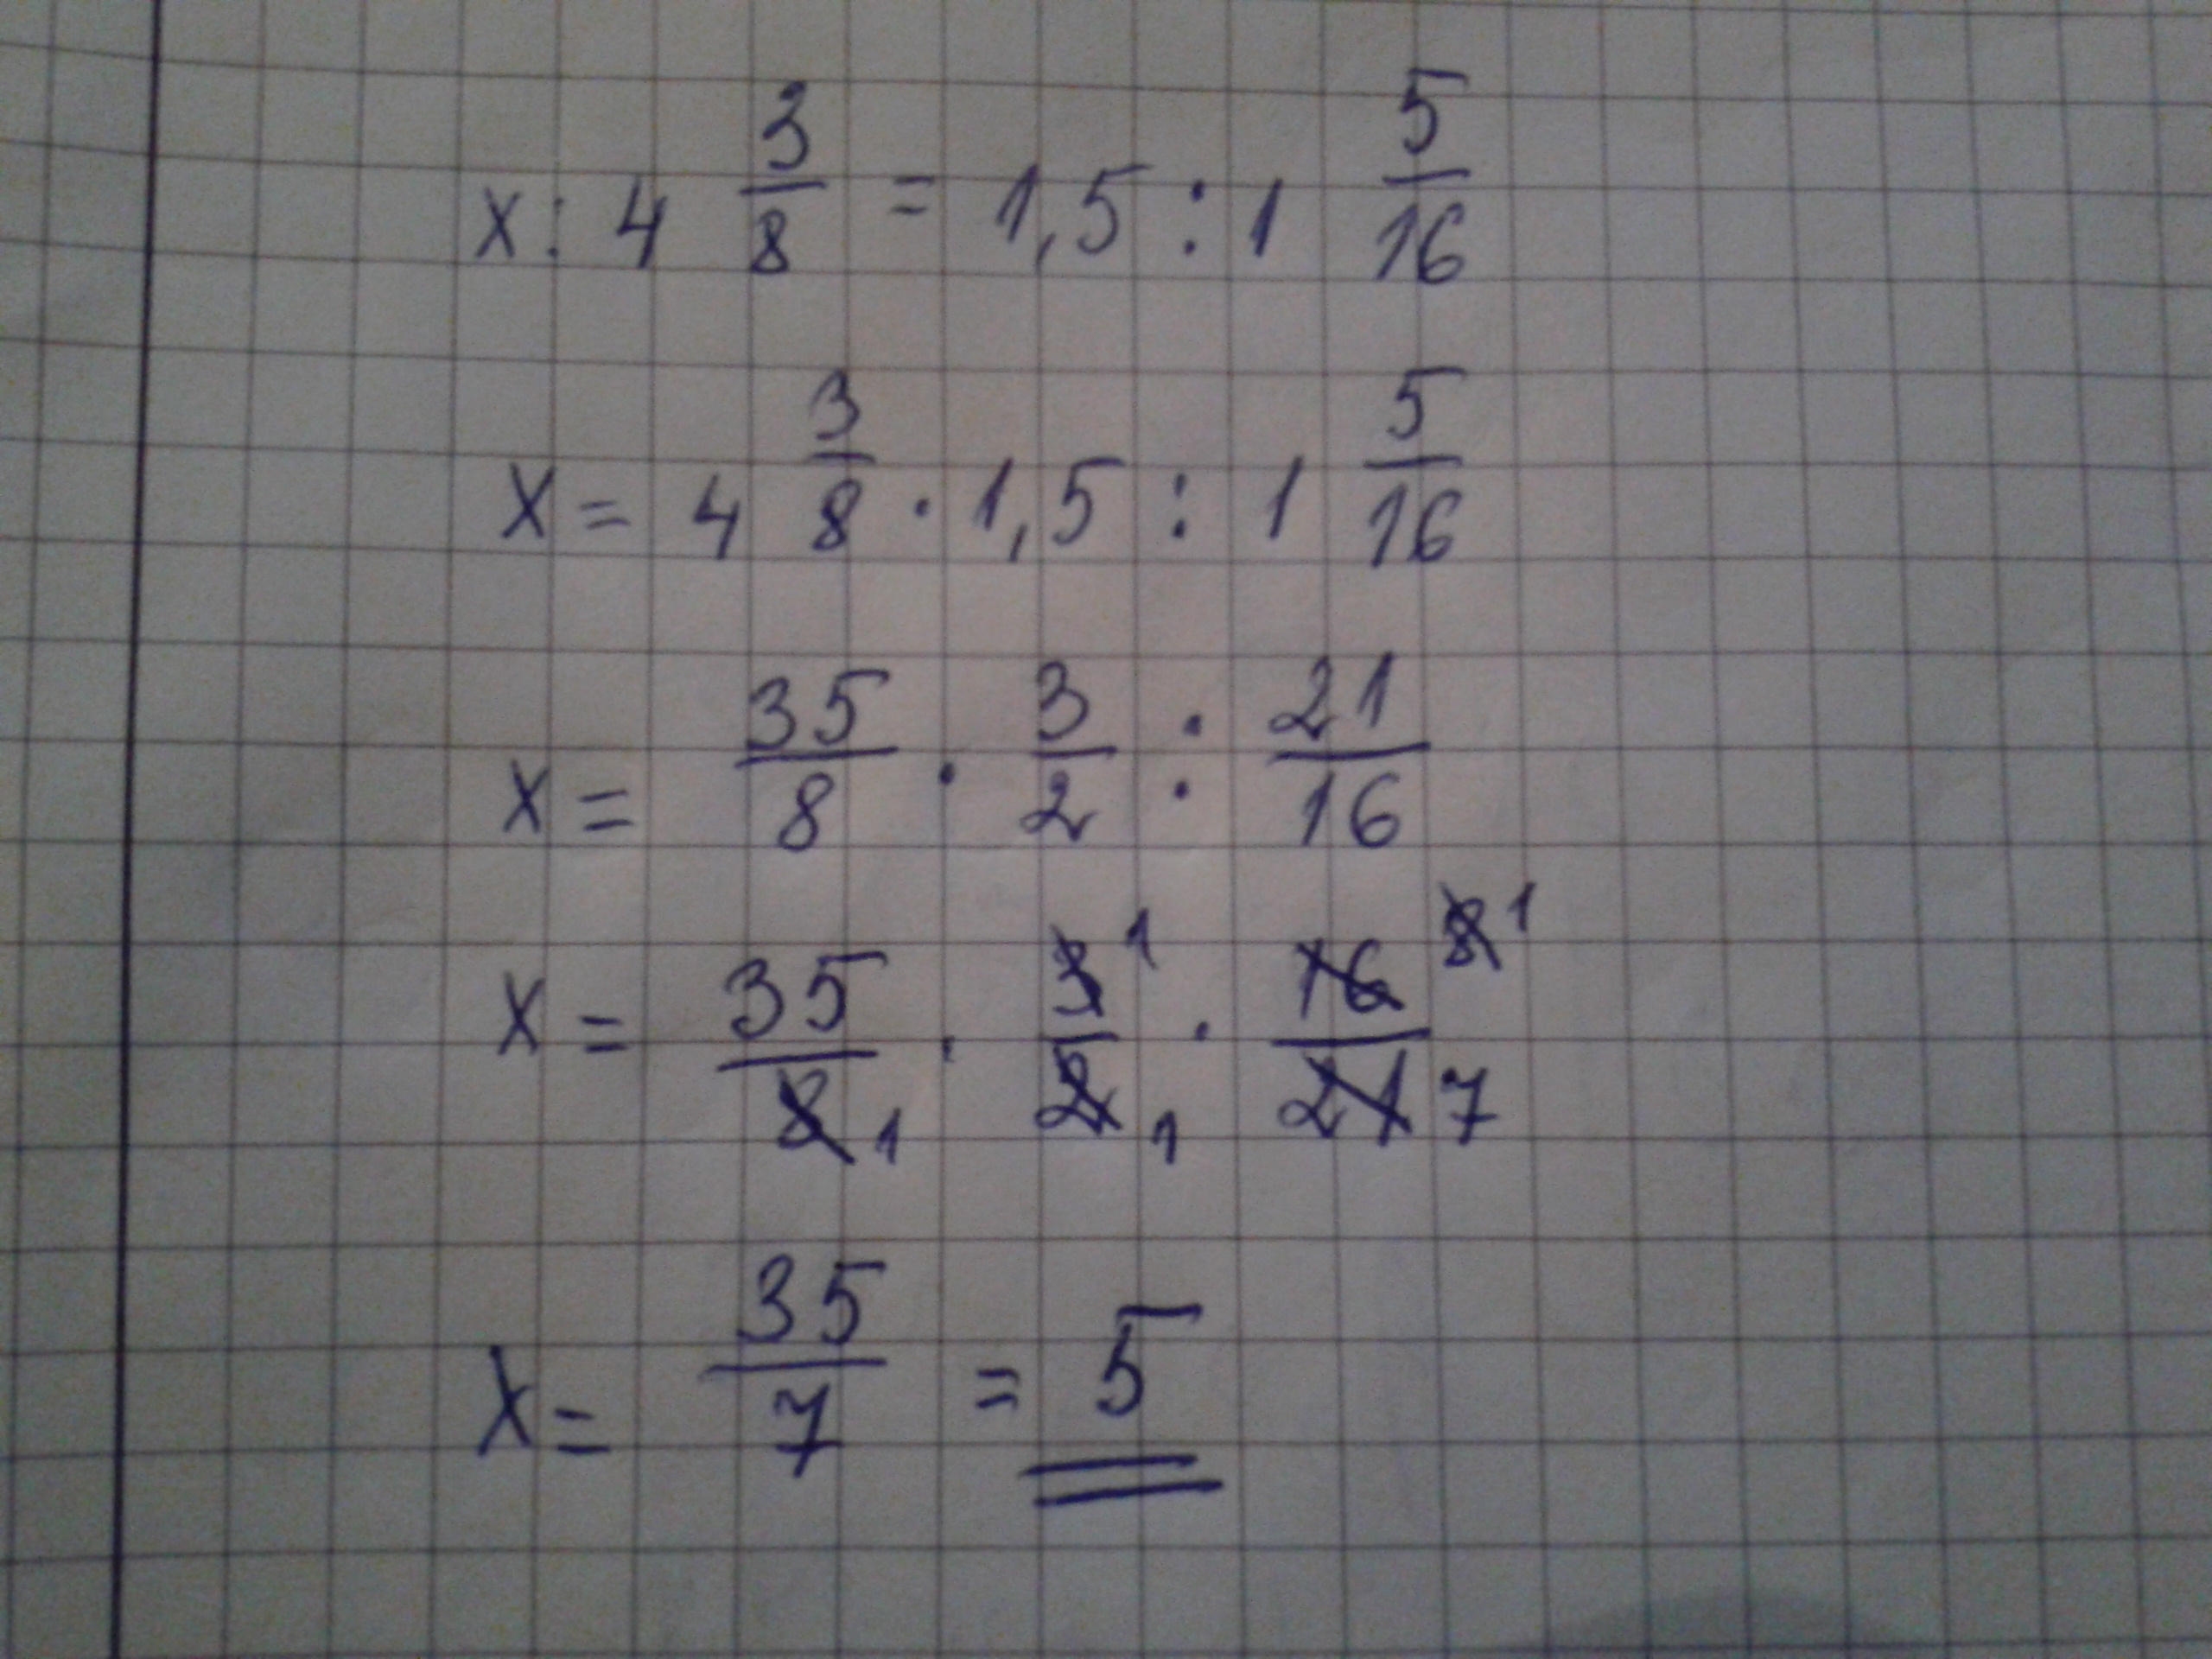 x : 4 3/8 = 1,5 : 1 5/16
x = 4 3/8 · 1,5 : 1 5/16
x = 35/8 · 3/2 : 21/16
x = 35/8 1 · 3 1/2 1 · 16 8 1/21 7
x = 35/7 = 5